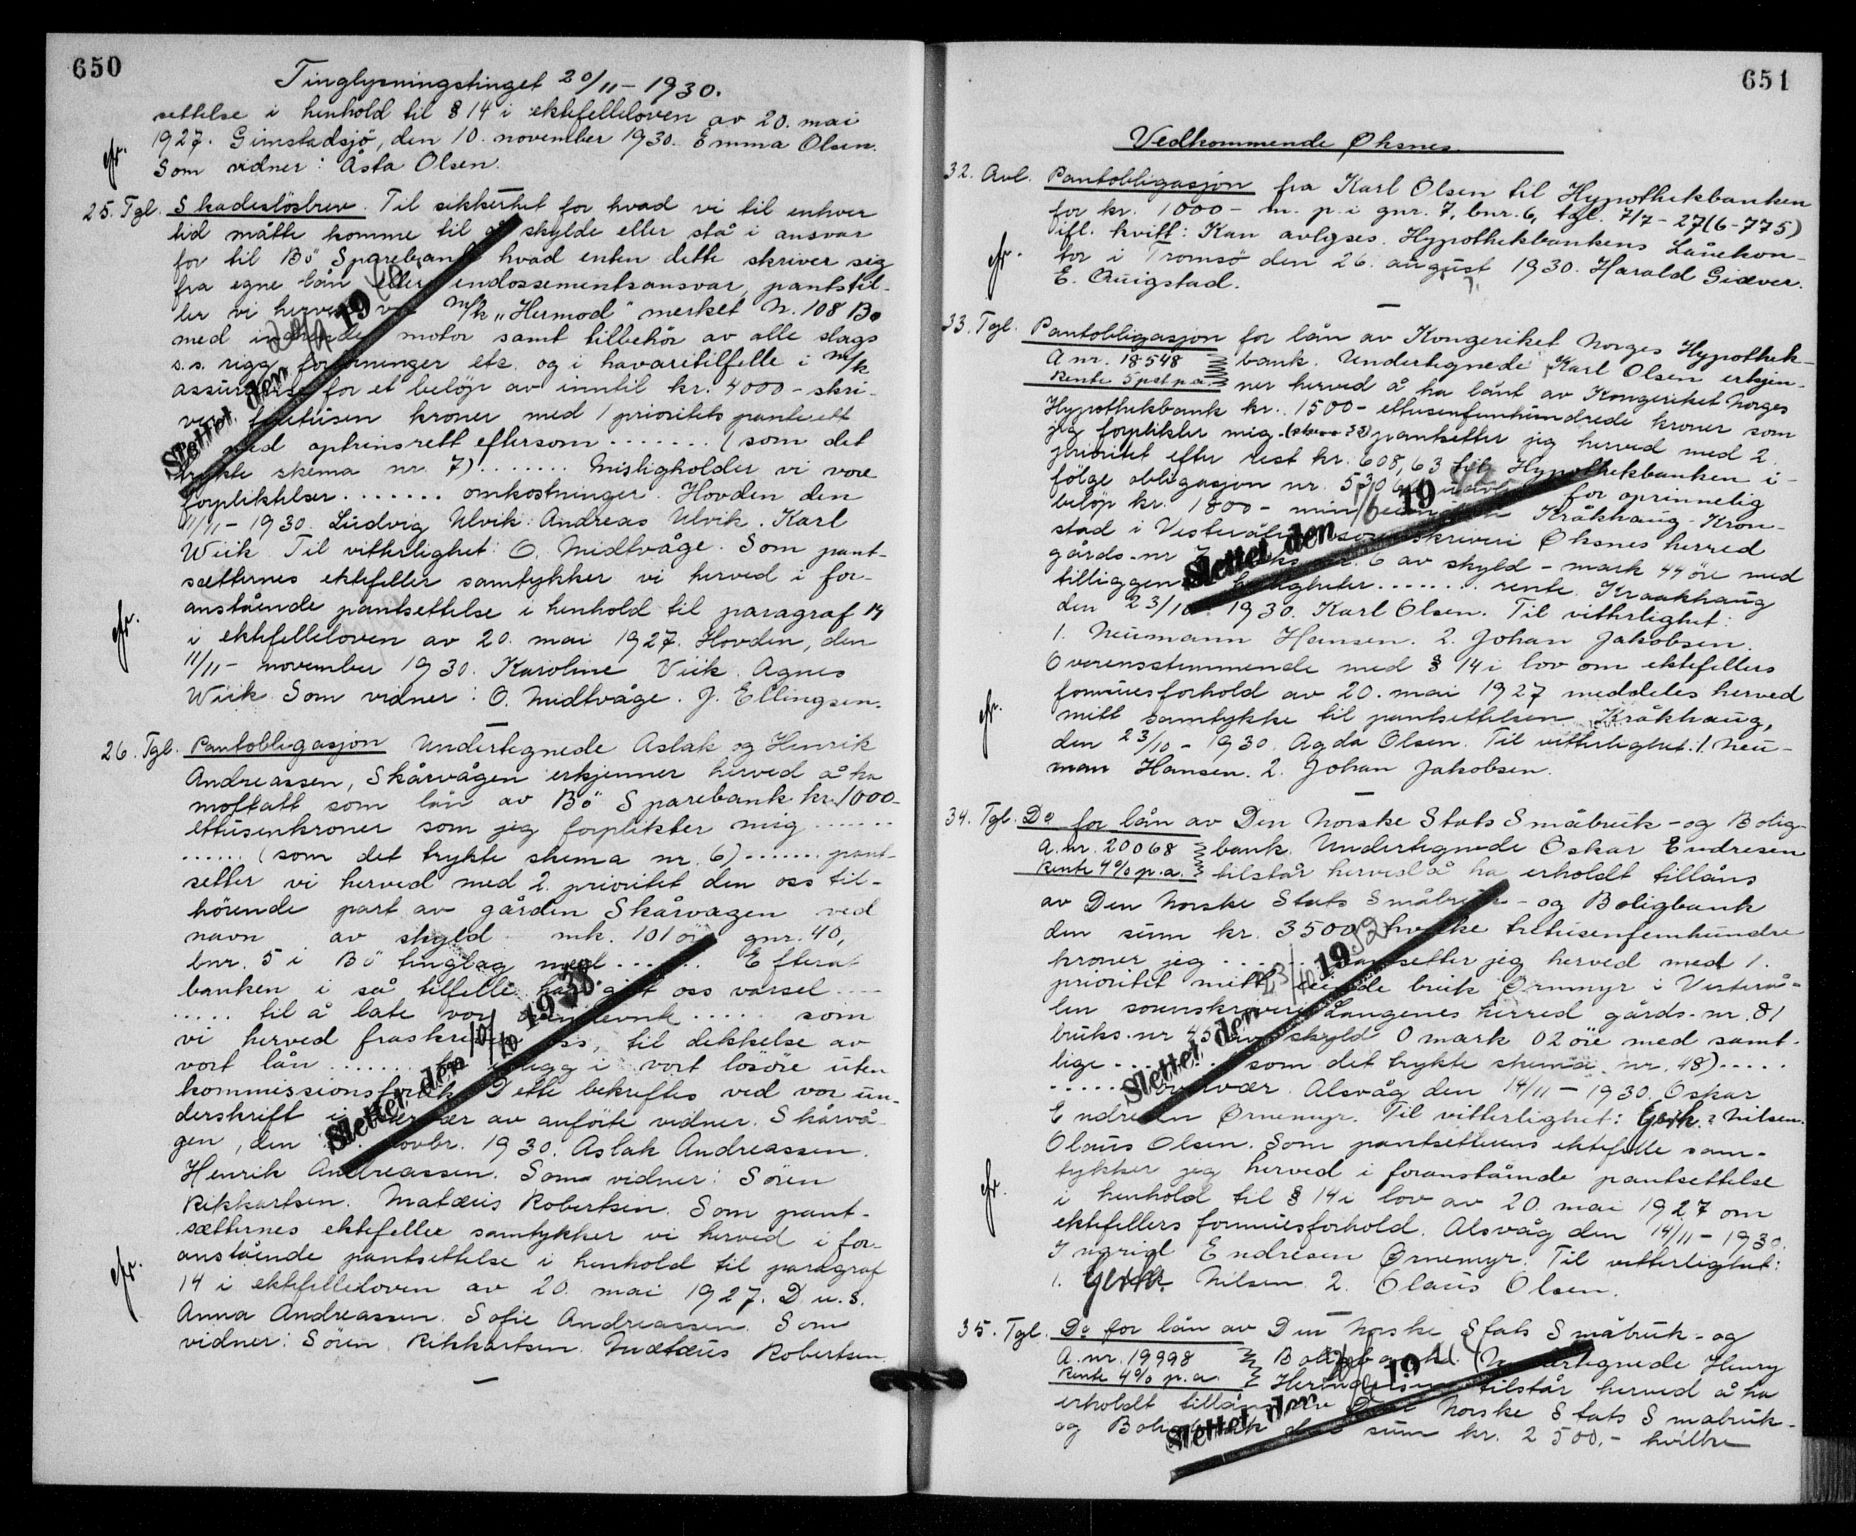 650
Tinglysningstinget 20/11 - 1930.
settelse i henhold til § 14 i ektefelleloven av 20. mai
1927. Gimstadsjö, den 10. november 1930. Emma Olsen.
Som vidner: Åsta Olsen.
25. Tgl. Skadeslösbrev. Til sikkerhet for hvad vi til enhver
tid måtte komme til å skylde eller stå i ansvar
for til Bö Sparebank hvad enten dette skriver sig
fra egne lån eller endossementsansvar, pantstil-
ler vi herved vor m/k „Hermod" merket N. 108 Bø
med motor samt tilbehör av alle slags
s.s. rigg, etc. og i havaritilfelle i m/k
assuranse for et belöp av inntil kr. 4000 - skri-
ver firetusen kroner med 1 prioritets panterett
med optrinsrett eftersom ....... (som det
trykte skema nr. 7) ....... Misligholder vi vore
forpliktelser ....... omkostninger. Hovden den
11/11 - 1930. Ludvig Ulvik. Andreas Ulvik. Karl
Wiik. Til vitterlighet: O. Midtvåge. Som pant-
sætternes ektefeller samtykker vi herved i for-
anstående pantsettelse i henhold til paragraf 14
i ektefelleloven av 20. mai 1927. Hovden, den
11/11 - november 1930. Karoline Viik. Agnes
Wiik. Som vidner: O. Midtvåge. J. Ellingsen.
Slettet den 19
26. Tgl. Pantobligasjon Undertegnede Aslak og Henrik
Andreassen, Skårvågen erkjenner herved å ha
mottatt som lån av Bö Sparebank kr. 1000-
ettusenkroner som jeg forplikter mig .......
...... (som det trykte skema nr. 6) ....... pant-
setter vi herved med 2. prioritet den oss til-
hörende part av gården Skårvagen ved
navn av skyld mk. 101 öre gnr. 40,
bnr. 5 i Bö tinglag med ...... Efterat
banken i så tilfelle har gitt oss varsel ....
..... til å late vor ..... som
vi herved fraskriver oss, til dekkelse av
vort lån ........ i vort lösöre uten
kommissionsforlik. Dette bekreftes ved vor un-
derskrift i nærvær av anförte vidner. Skårvå-
gen, den novbr. 1930. Aslak Andreassen.
Henrik Andreassen. Som vidner: Sören
Rikkartsen. Matæus Robertsen. Som pant-
sætternes ektefeller samtykker vi herved i for-
anstående pantsettelse i henhold til paragraf
14 i ektefelleloven av 20. mai 1927. D.u.s.
Anna Andreassen. Sofie Andreassen. Som
vidner: Sören Rikkartsen. Matæus Robertsen.
Slettet den 10/10 1938.
651
Vedkommende Øksnes.
32. Avl. Pantobligasjon fra Karl Olsen til Hypothekbanken
for kr. 1000 - m. p. i gnr. 7, bnr. 6, tgl. 7/7 - 27 (6-775)
ifl. kvitt: Kan avlyses. Hypothekbankens Lånekon-
tor i Tromsö den 26. august 1930. Harald Giæver.
E. Quigstad.
33. Tgl. Pantobligasjon for lån av Kongeriket Norges Hypothek-
A nr. 18548 bank. Undertegnede Karl Olsen erkjen-
Rente 5 pst p.a. ner herved å ha lånt av Kongeriket Norges
Hypothekbank kr. 1500 - ettusenfemhundrede kroner som
jeg forplikter mig pantsetter jeg herved med 2.
prioritet efter rest kr. 608,63 til Hypothekbanken i-
fölge obligasjon nr. for oprinnelig
belöp kr. 1800 - min Kråkhaug - Kron-
stad i Vesterålen sorenskriveri Øksnes herred
gårds.nr 7 6 av skyld - mark 44 öre med
tilliggende herligheter ...... rente. Kraakhaug
den 23/10 - 1930. Karl Olsen. Til vitterlighet:
1. Neumann Hansen. 2. Johan Jakobsen.
Overensstemmende med § 14 i lov om ektefellers
formuesforhold av 20. mai 1927 meddeles herved
mitt samtykke til pantsettelsen. Kråkhaug,
den 23/10 - 1930. Agda Olsen. Til vitterlighet: 1. Neu-
man Hansen. 2. Johan Jakobsen.
Slettet den 1/6 1942
34. Tgl. Do for lån av Den Norske Stats Småbruk- og Bolig-
A. nr. 20068 bank. Undertegnede Oskar Endresen
Rente 4% p.a. tilstår herved å ha erholdt tillåns
av Den Norske Stats Småbruk- og Boligbank
den sum kr. 3500 hvilke tretusenfemhundre
kroner jeg ..... pantsetter jeg herved med 1.
prioritet mitt eiende bruk Ørnmyr i Vesterå-
len sorenskriveri Langenes herred gårds.nr. 81
bruks.nr 45 av skyld 0 mark 02 öre med samt-
lige ....... (som det trykte skema nr. 48) .....
...... nærvær. Alsvåg den 14/11 - 1930. Oskar
Endresen Ørnemyr. Til vitterlighet: Nilsen.
Olaus Olsen. Som pantsetterens ektefelle sam-
tykker jeg herved i foranstående pantsettelse
i henhold til § 14 i lov av 20. mai 1927 om
ektefellers formuesforhold. Alsvåg den 14/11 - 1930.
Ingrigt Endresen Ørnemyr. Til vitterlighet:
1. Nilsen. 2. Olaus Olsen.
Slettet den 23/10 1952
35. Tgl. Do for lån av Den Norske Stats Småbruk- og
A. nr. 19998 Boligbank. Undertegnede Henry
Rente 4% p.a. tilstår herved å ha
erholdt tillåns av Den Norske Stats Småbruk-
og Boligbank den sum kr. 2500,- hvilke
Slettet den 19